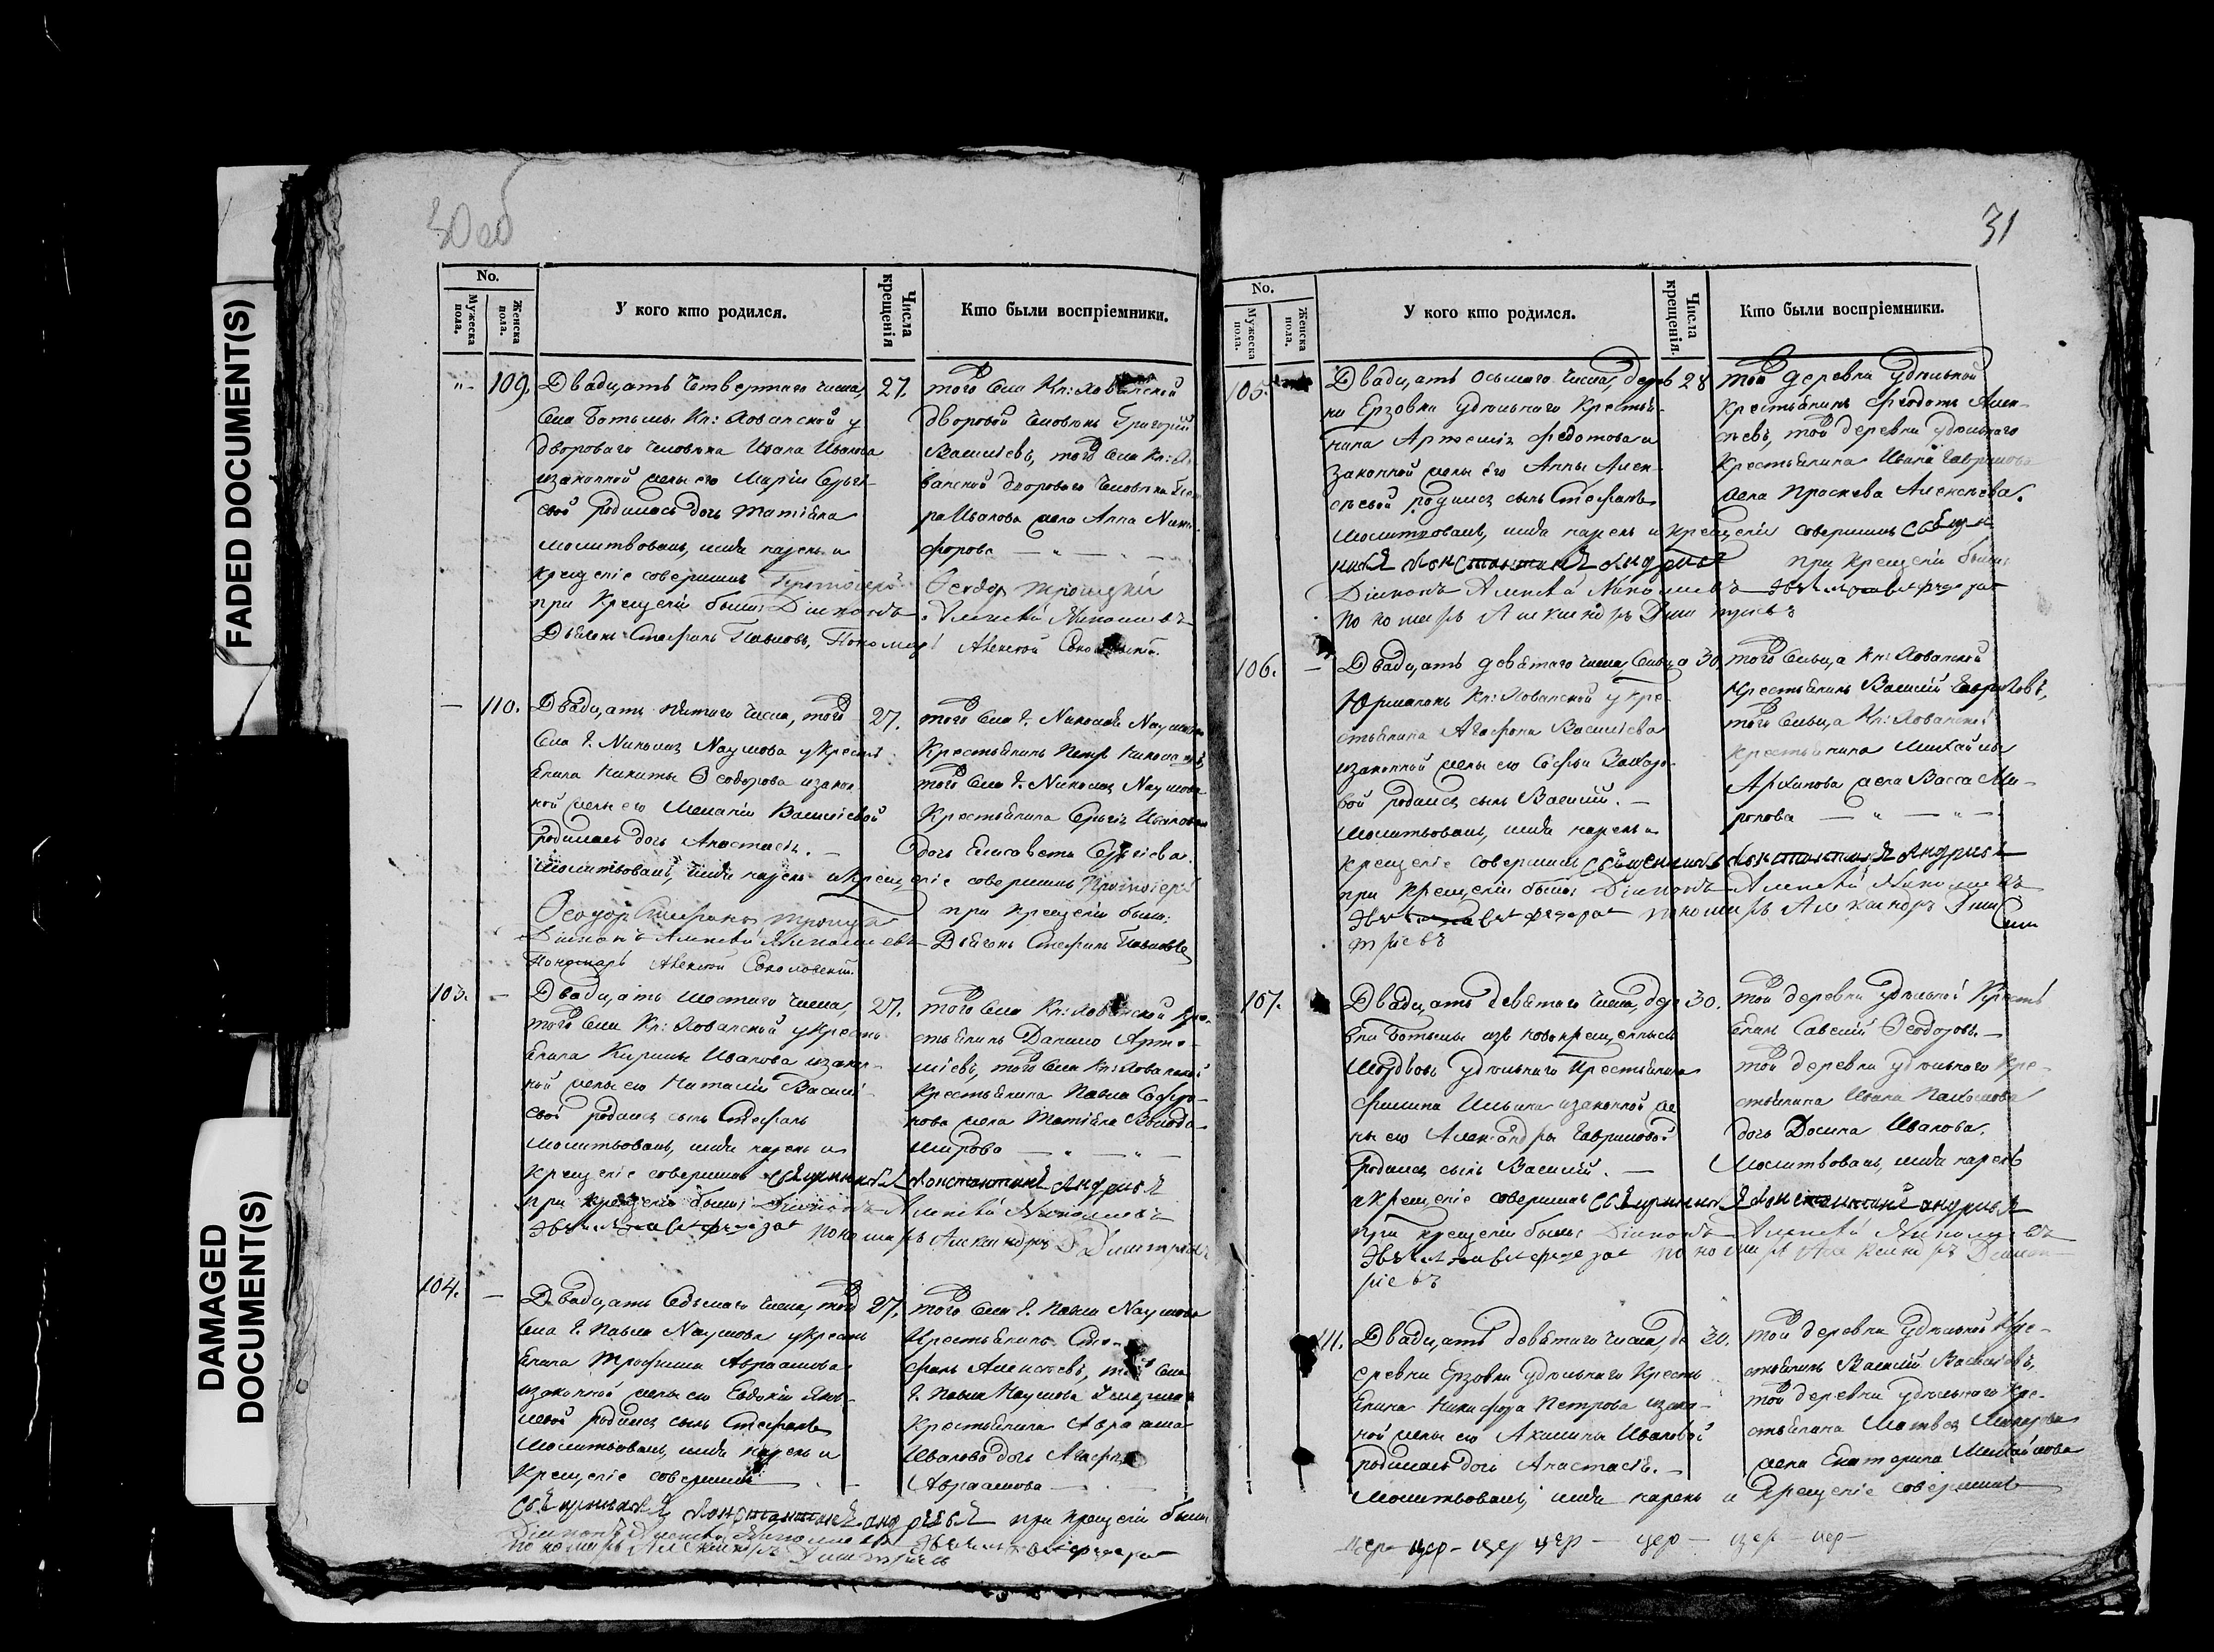 FADED DOCUMENT(S)
DAMAGED
DOCUMENT(S)
30 об
No.
Мужеска пола.
Женска пола.
У кого кто родился.
Числа крещенія
Кто были воспріемники.
109.
Двадцать четвертаго числа,
27.
Села Ботьмы Кн: Хованской у
двороваго человѣка Ивана Иванова
и законной жены его Маріи Сергѣ-
евой родилась дочь Татіана
молитвовалъ, имя нарекъ и
крещеніе совершилъ Протоіерей
при крещеніи были: Діаконъ
Дьячокъ Стефанъ Павловъ, Пономарь
того села Кн: Хованской
дворовой человѣкъ Григорій
Василіевъ, того села Кн: Хо-
ванской двороваго человѣка
Иванова жена Анна Ники-
форова
Ѳеодор Троицкій
Алексѣй Николаевъ
Алексѣй Соколовскій.
110.
Двадцать пятаго числа, того
27.
села Г. Николая Наумова у кресть
янина Никиты Ѳеодорова и закон
ной жены его Меланіи Василіевой
родилась дочь Анастасія.
молитвовалъ, имя нарекъ и крещеніе совершилъ Протоіерей
Ѳеодор Стефановъ Троицкій
при крещеніи были:
Діаконъ Алексѣй Николаевъ Дьячокъ Стефанъ Павловъ
Пономарь Алексѣй Соколовскій.
того села Г. Николая Наумова
крестьянинъ Петръ Николаевъ,
того села Г. Николая Наумова
крестьянина Сергія Иванова
дочь Елисавета Сергіева.
103.
Двадцать шестаго числа,
27.
того села Кн: Хованской у кресть
янина Кирилы Иванова и закон-
ной жены его Наталіи Василі
евой родился сынъ Стефанъ
молитвовалъ, имя нарекъ и
крещеніе совершилъ священникъ Константинъ Андреевъ
при крещеніи были: Діаконъ Алексѣй Николаевъ
пономарь Александръ Димитріевъ
того села Кн: Хованской кре-
стьянинъ Данило Арте-
міевъ, того села Кн: Хованской
крестьянина Павла Софро-
нова жена Татіана Володи-
мирова
104.
Двадцать седьмаго числа, того
27.
села Г. Павла Наумова у кресть
янина Трофима Авраамова
и законной жены его Евдокіи Яков-
левой родился сынъ Стефанъ
молитвовалъ, имя нарекъ и
крещеніе совершилъ
священникъ Константинъ Андреевъ при крещеніи были
Діаконъ Алексѣй Николаевъ
пономарь Александръ Димитріевъ
того села Г. Павла Наумова
крестьянинъ Сте-
фанъ Алексѣевъ, того села
Г. Павла Наумова
крестьянина Авраама
Иванова дочь Агафья
Авраамова
31
No.
Мужеска пола.
Женска пола.
У кого кто родился.
Числа крещенія.
Кто были воспріемники.
105.
Двадцать осьмаго числа, дерев
28
ни Ерзовки удѣльнаго крестья-
нина Артемія Федотова и
законной жены его Анны Алек-
сѣевой родился сынъ Стефанъ
молитвовалъ, имя нарекъ и крещеніе совершилъ священ
никъ Константинъ Андреевъ при крещеніи были:
Діаконъ Алексѣй Николаевъ
пономарь Александръ Димитріевъ
той деревни удѣльной
крестьянинъ Федотъ Алек-
сѣевъ, той деревни удѣльнаго
крестьянина Ивана Гаврилова
жена Проскева Алексѣева.
106.
Двадцать девятаго числа, сельца
30
Юрманокъ Кн: Хованской у кре-
стьянина Агафона Василіева
и законной жены его Софьи Захаро-
вой родился сынъ Василій.
молитвовалъ, имя нарекъ и
крещеніе совершилъ священникъ Константинъ Андреевъ
при крещеніи были: Діаконъ Алексѣй Николаевъ
пономарь Александръ Дими
тріевъ
того сельца Кн: Хованской
крестьянинъ Василій Гавриловъ,
того сельца Кн: Хованской
крестьянина Михайлы
Архипова жена Васса Ми-
ронова
107.
Двадцать девятаго числа, дере
30.
вни Ботьмы изъ новокрещенныхъ
Мордвовъ удѣльнаго крестьянина
Филипа Ильина и законной же
ны его Александры Гавриловой
родился сынъ Василій.
молитвовалъ, имя нарекъ
и крещеніе совершилъ священникъ Константинъ Андреевъ
при крещеніи были: Діаконъ Алексѣй Николаевъ
пономарь Александръ Димит
ріевъ
той деревни удѣльной кресть
янинъ Савелий Ѳеодоровъ.
той деревни удѣльнаго кре-
стьянина Ивана Пахомова
дочь Досина Иванова.
111.
Двадцать девятаго числа, де
30.
ревни Ерзовки удѣльнаго кресть
янина Никифора Петрова и закон-
ной жены его Акилины Ивановой
родилась дочь Анастасія.
молитвовалъ, имя нарекъ и крещеніе совершилъ
той деревни удѣльной кре-
стьянинъ Василій Василіевъ,
той деревни удѣльнаго кре-
стьянина Матвея Макарова
жена Екатерина Михайлова
цер - цер - цер цер - цер - цер - цер -